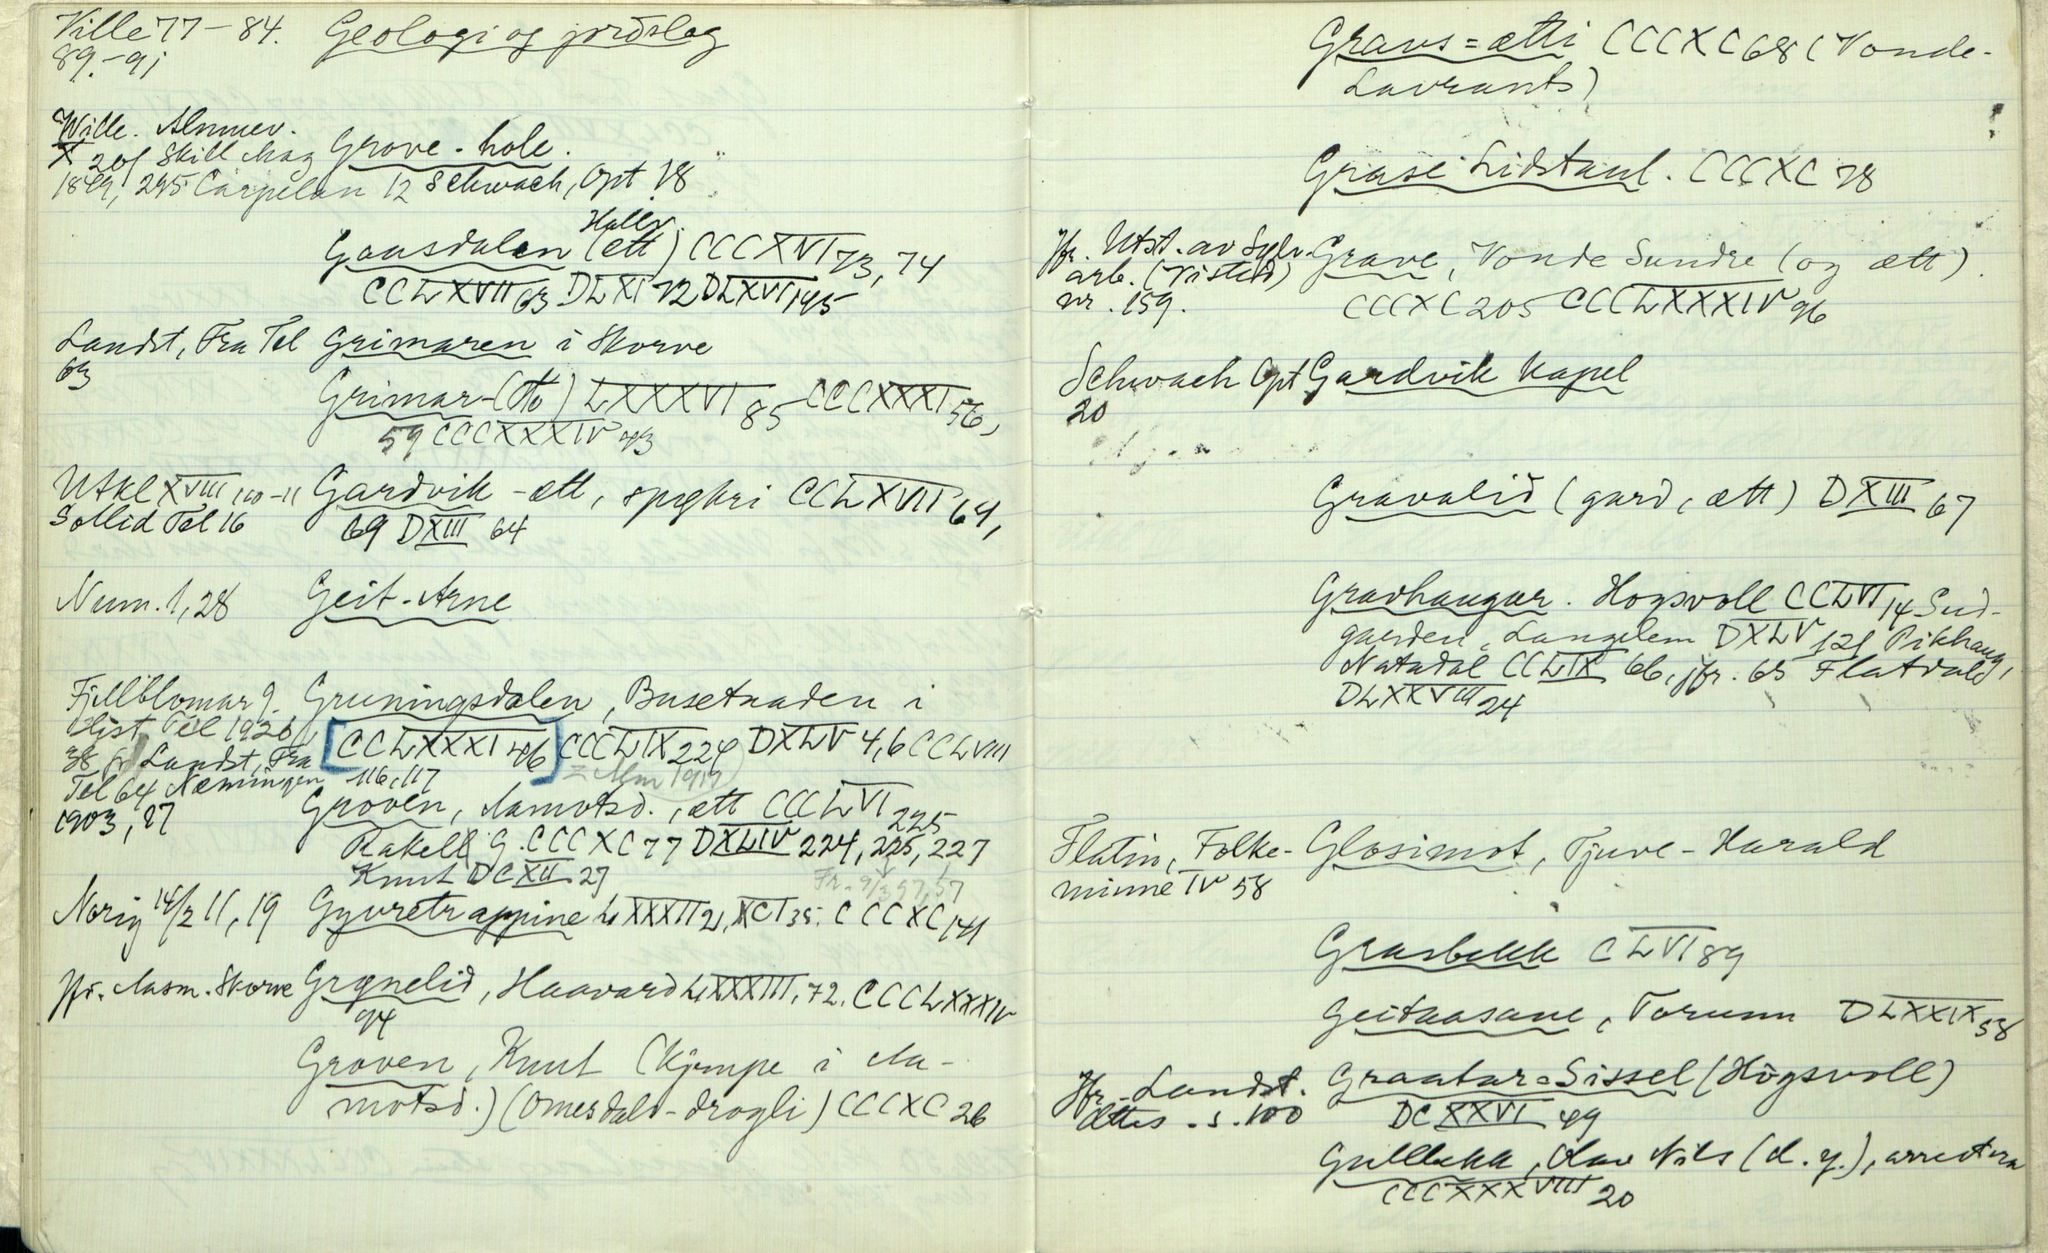 Wille 77-84. Geologi og jordslag
89.-91
Wille. Almuev.
X 201 Skill Mag Grove-hole.
1849, 295 Carpelan 12 Schwach, Opt 18
Hallv.
Gaasdalen (ett) CCCXVI 73, 74
CCLXVII 63 DLXI 12 DLXVI 145
Landst, Fra Tel Grimaren i Skorve
63
Grimar-(tto) LXXXVI 85 CCCXXXI 56,
59 CCCXXXIV 43
Utkl XVIII 110-11 Gardvik-ætt, spøkri CCLXVII 64,
Sollid Tel 16 69 DXIII 64
Num. 1, 28 Geit-Arne
Fjellblomar 9. Gruningsdalen, Busetnaden i
Hist Tel 1926
38 Landst, Fra [CCLXXXI 46] CCCLIX 224 DXLV 4, 6 CCLVIII
Tel 64 Næmningen 116, 117
1903, 27 Groven, Aamotsd., ætt CCCLVI 225
Rakell G. CCCXC 77 DXLIV 224, 225, 227
Knut DCXII 27
Norig 14/2 11, 19 Gyvretrappine LXXXII 21, XCI 35. CCCXC 141
Jfr. Aasm. Skorve Grønelid, Haavard LXXXIII, 72. CCCLXXXIV
94
Groven, Knut (kjempe i Aa-
motsd.) (Omesdals-drogli) CCCXC 26
Gravs=ætti CCCXC 68 (Vonde-
Lavrants)
Grase Lidstaul. CCCXC 78
Jfr. Utst. av Sylv- Grave, Vonde Sundre (og ætt).
arb. (Visted)
nr. 159. CCCXC 205 CCCLXXXIV 96
Schwach Opt Gardvik Kapel
20
Gravalid (gard, ætt) DXIII 67
Gravhaugar. Hogsvoll CCLVI 14 Sud-
garden, Langelem DXLV 121 Pikhaug,
Natadal CCLIX 66, jfr. 65 Flatdal,
DLXXVIII 24
Flatin, Folke- Glosimot, Tjuve-Harald
minne IV 58
Grasbekk CLVI 89
Geitaasane, Torunn DLXXIX 58
Jfr. Landst. Graatar=Sissel (Høgsvoll)
Ættes. s. 100 DCXXVI 49
Gullbekk, Olav Nils (d. y.), arrestera
CCCXXXVIII 20